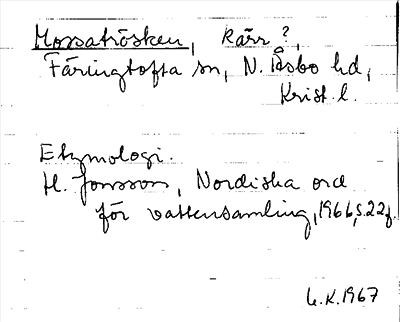 Mossatrösken, kärr?,
Färingtofta sn, N. Åsbo hd,
Krist. l.
Etymologi.
H. Jonsson, Nordiska ord
för vattensamling, 1966, s. 22f.
L.K. 1967